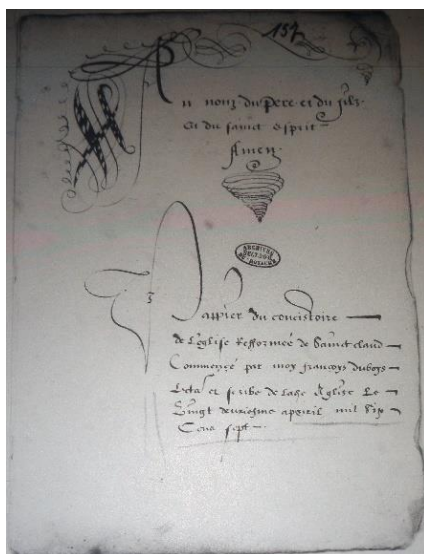 157
An nom du Pere et du filz
Et du sainct Esprit
Amen
ARCHIVES
Pappier du concistoire
de l'eglise Refformée de Sainct claud
Commencé par moy françoys duboys
et scribe de Eglise Le
Vingt deuxiesme apvril mil six
Cens sept